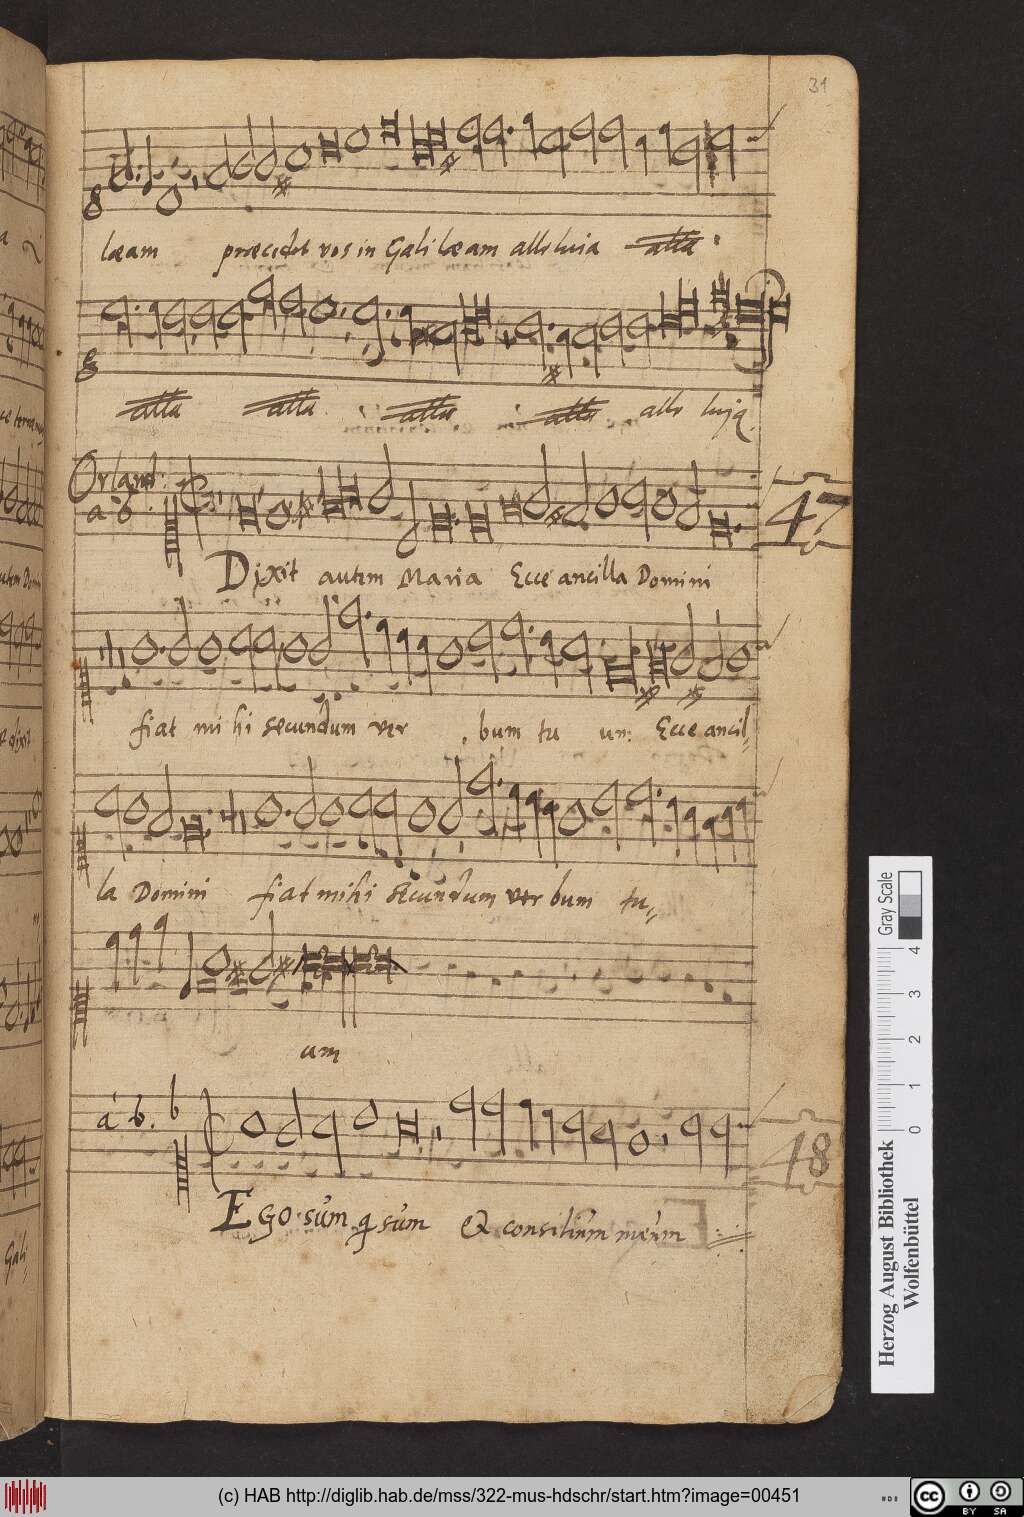 31
læam præcedet vos in Galilæam alleluia alla
alla alla alla alla alle luja
Orland:
a 6.
47
Dixit autem Maria Ecce ancilla Domini
fiat mi hi secundum ver bum tu um: Ecce ancil=
la Domini fiat mihi secundum ver bum tu=
um
a 6.
48
Ego sum q sum & consilium meum
Gray Scale
0 1 2 3 4
Herzog August Bibliothek
Wolfenbüttel
(c) HAB http://diglib.hab.de/mss/322-mus-hdschr/start.htm?image=00451
cc BY SA